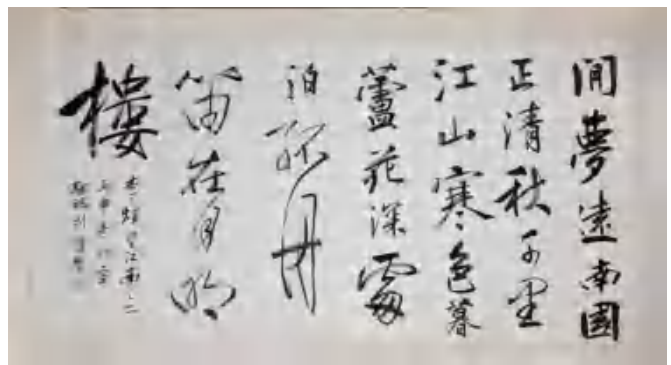 閒夢遠南國
正清秋千里
江山寒色暮
蘆花深處
泊孤舟
笛在月明
樓
李煜望江南之二